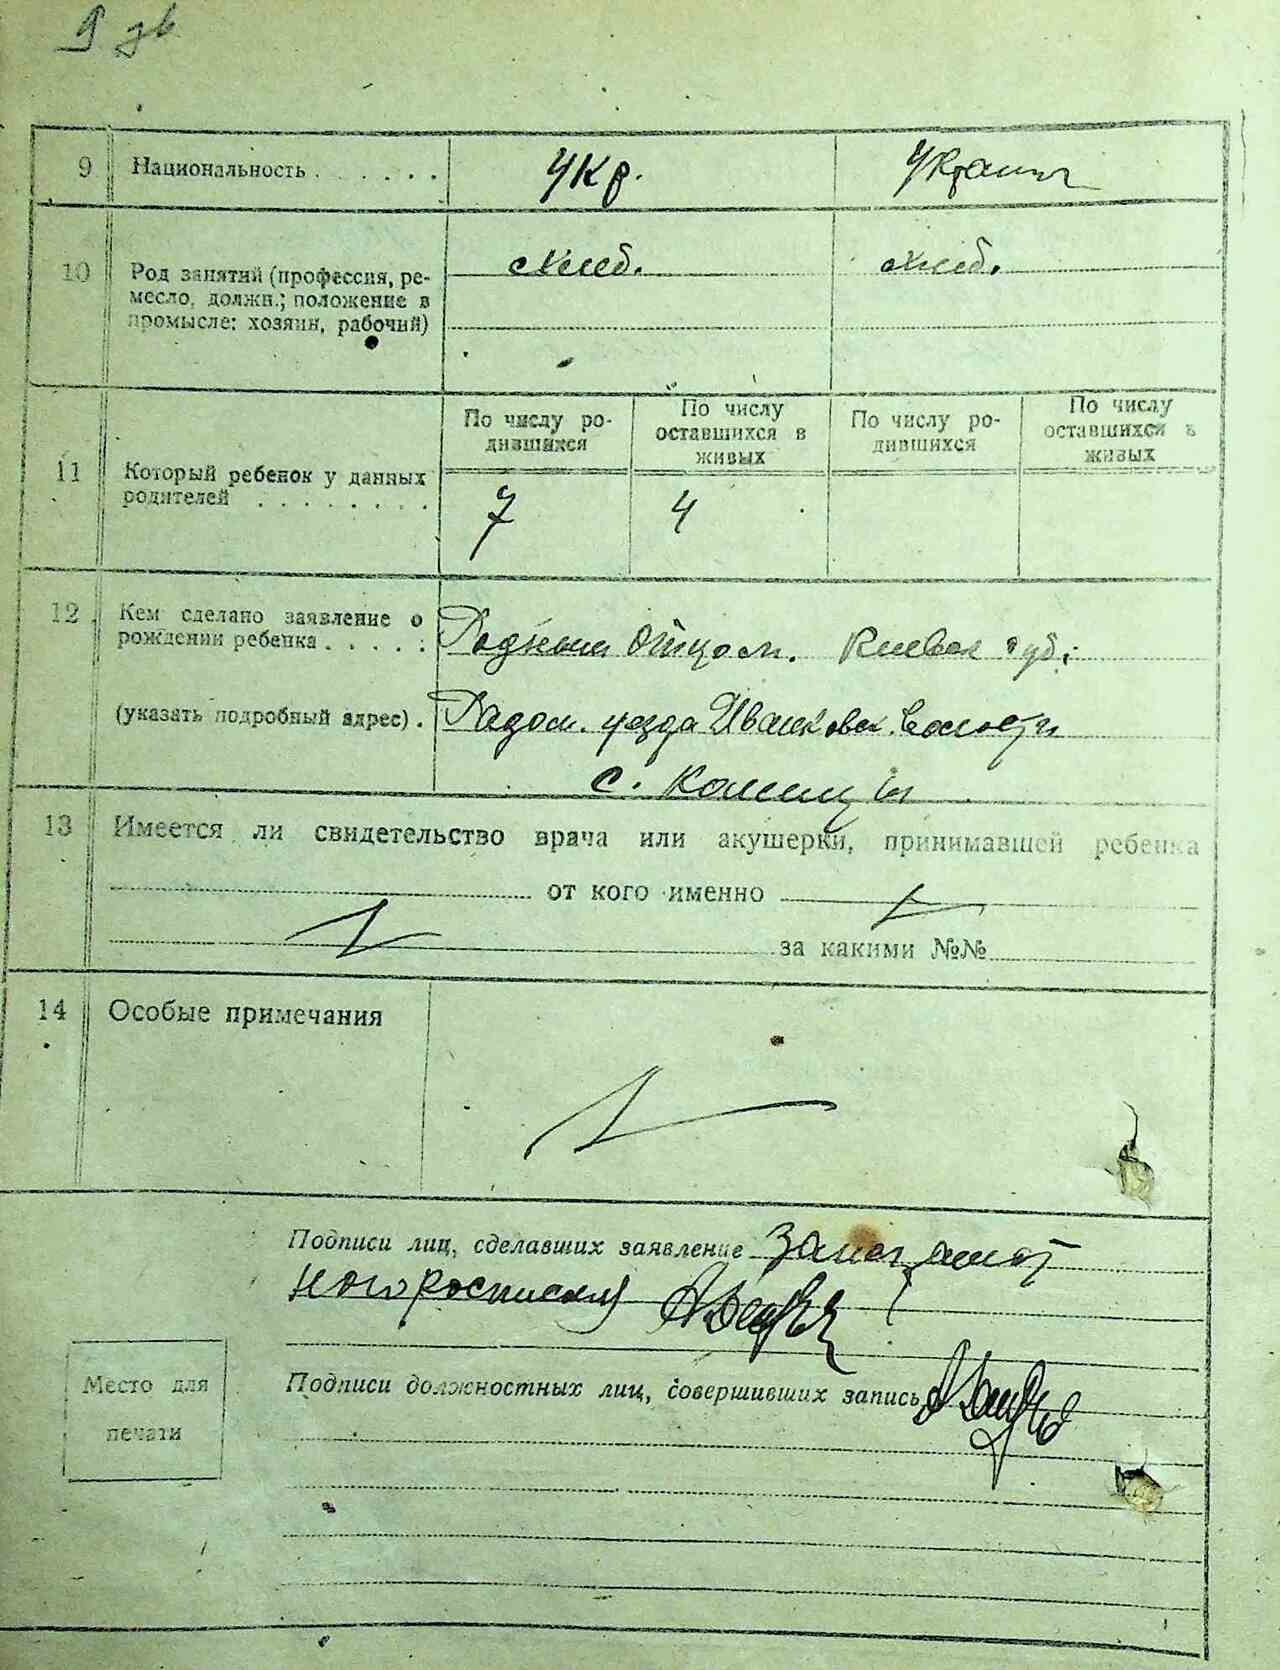 9 зв
9 Национальность . . . . . . укр. украин
10 Род занятий (профессия, ре-
месло, должн.; положение в
промысле: хозяин, рабочий)
хлеб. хлеб.
По числу ро-
дившихся
По числу
оставшихся в
живых
По числу ро-
дившихся
По числу
оставшихся в
живых
11 Который ребенок у данных
родителей . . . . . . . .
7 4
12 Кем сделано заявление о
рождении ребенка . . . . .
Родным отцом. Киевск губ.
(указать подробный адрес) . Радом. уезда Иванковск. волости
с.
13 Имеется ли свидетельство врача или акушерки, принимавшей ребенка
от кого именно
за какими №№
14 Особые примечания
Подписи лиц, сделавших заявление За неграмот
ного росписался
Место для
печати
Подписи должностных лиц, совершивших запись